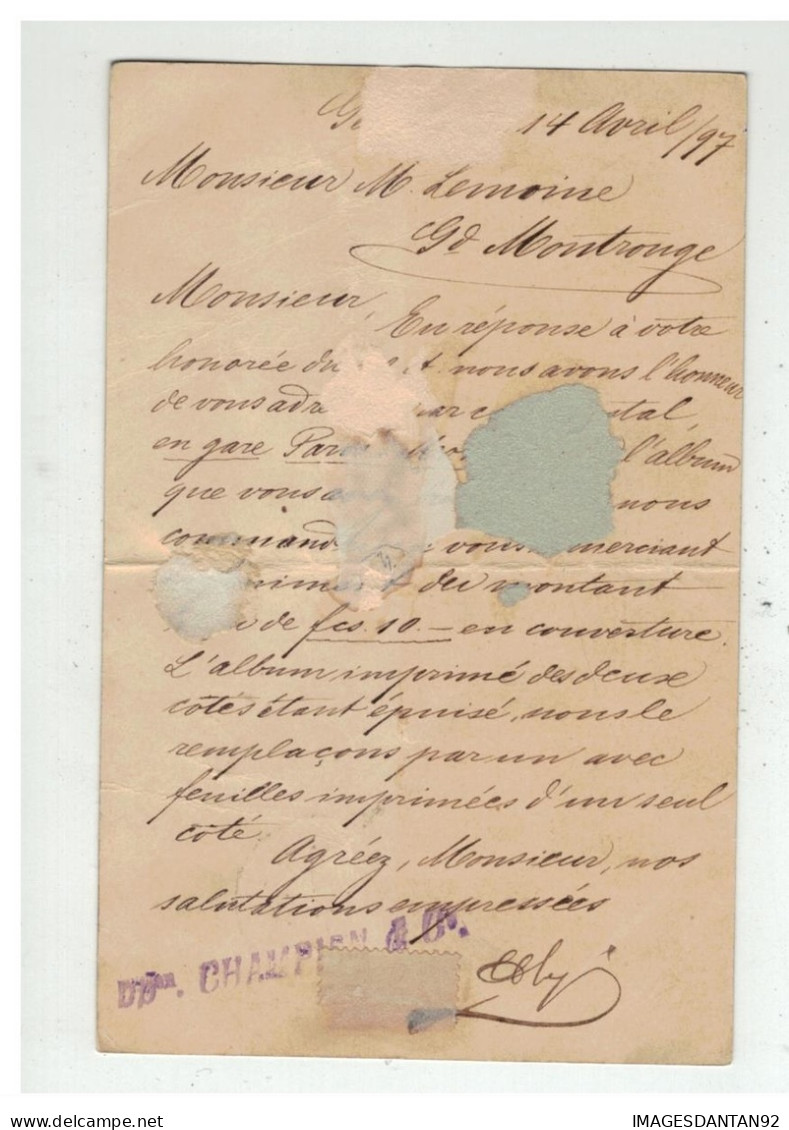 14 Avril/97
Monsieur M. Lemoine
Gd. Montrouge
Monsieur,
En réponse à votre
honorée du nous avons l'honneur
de vous
en gare l'album
que vous nous
vous
du montant
de fcs. 10.- en couverture.
L'album imprimé des deux
côtés étant épuisé, nous le
remplaçons par un avec
feuilles imprimées d'un seul
côté.
Agréez, Monsieur, nos
salutations empressées
CHAMPION & Co.
IMAGESDANTAN92